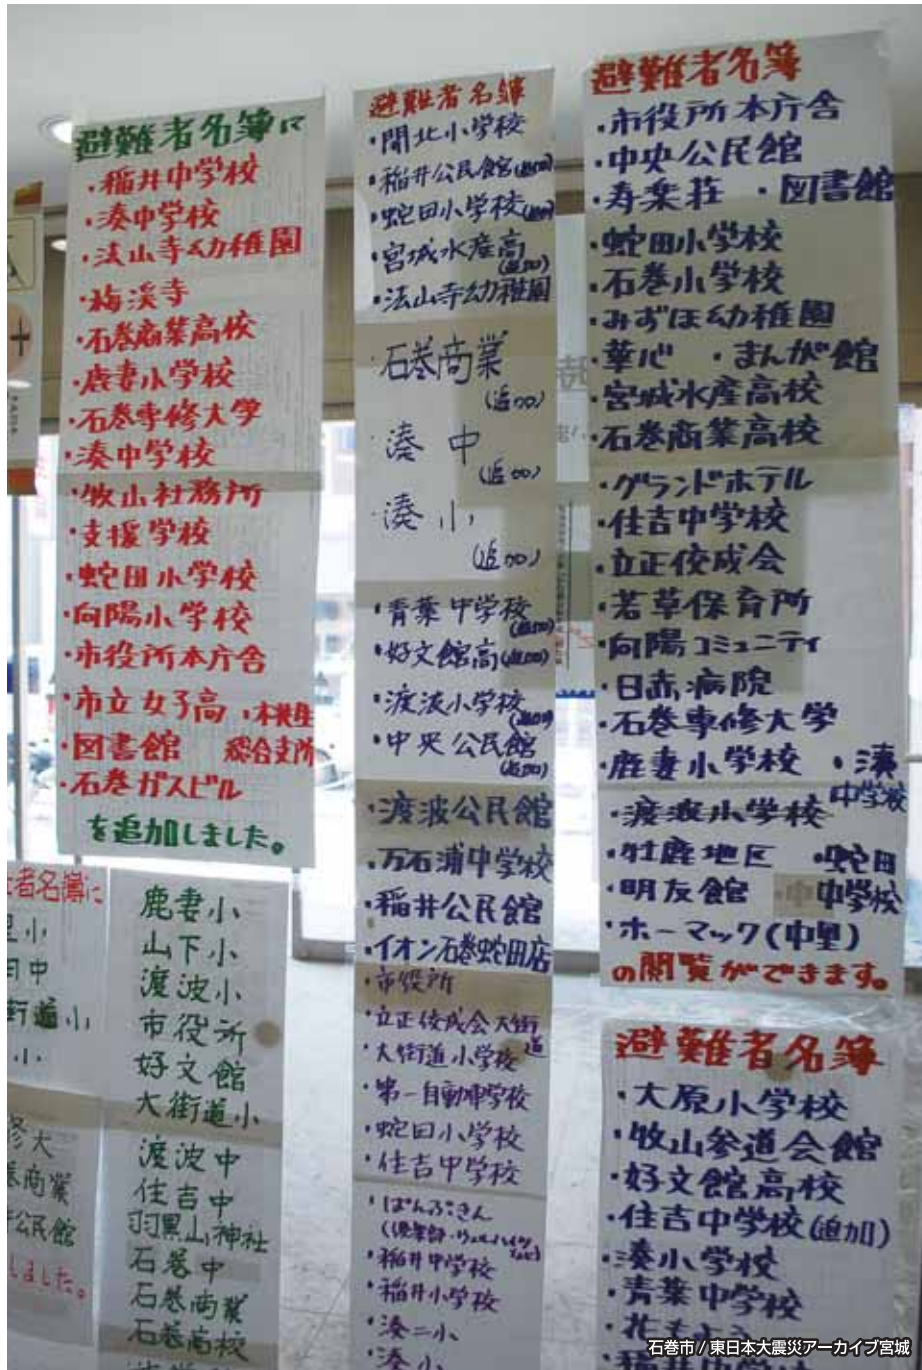 避難者名簿に
・稲井中学校
・湊中学校
・法山寺幼稚園
・梅溪寺
・石巻商業高校
・鹿妻小学校
・石巻専修大学
・湊中学校
・牧山社務所
・支援学校
・蛇田小学校
・向陽小学校
・市役所本庁舎
・市立女子高
・図書館 総合支所
・石巻ガスビル
を追加しました。
者名簿に
小
中
街道小
小
修大
巻商業
公民館
しました。
鹿妻小
山下小
渡波小
市役所
好文館
大街道小
渡波中
住吉中
羽黒山神社
石巻中
石巻商業
石巻高校
避難者名簿
・開北小学校
・稲井公民館(追加)
・蛇田小学校(追加)
・宮城水産高(追加)
・法山寺幼稚園
・石巻商業
(追加)
・湊中
(追加)
・湊小
(追加)
・青葉中学校(追加)
・好文館高(追加)
・渡波小学校(追加)
・中央公民館(追加)
・渡波公民館
・万石浦中学校
・稲井公民館
・イオン石巻蛇田店
・市役所
・立正佼成会大街道
・大街道小学校
・第一自動車学校
・蛇田小学校
・住吉中学校
・ぱんぷきん
・稲井中学校
・稲井小学校
・湊二小
・湊小
避難者名簿
・市役所本庁舎
・中央公民館
・寿楽荘 ・図書館
・蛇田小学校
・石巻小学校
・みずほ幼稚園
・華心 ・まんが館
・宮城水産高校
・石巻商業高校
・グランドホテル
・住吉中学校
・立正佼成会
・若草保育所
・向陽コミュニティ
・日赤病院
・石巻専修大学
・鹿妻小学校 ・湊中学校
・渡波小学校
・牡鹿地区 ・蛇田中学校
・明友館
・ホーマック(中里)
の閲覧ができます。
避難者名簿
・大原小学校
・牧山参道会館
・好文館高校
・住吉中学校(追加)
・湊小学校
・青葉中学校
石巻市 / 東日本大震災アーカイブ宮城